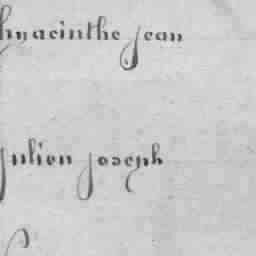 hyacinthe jean
julien joseph